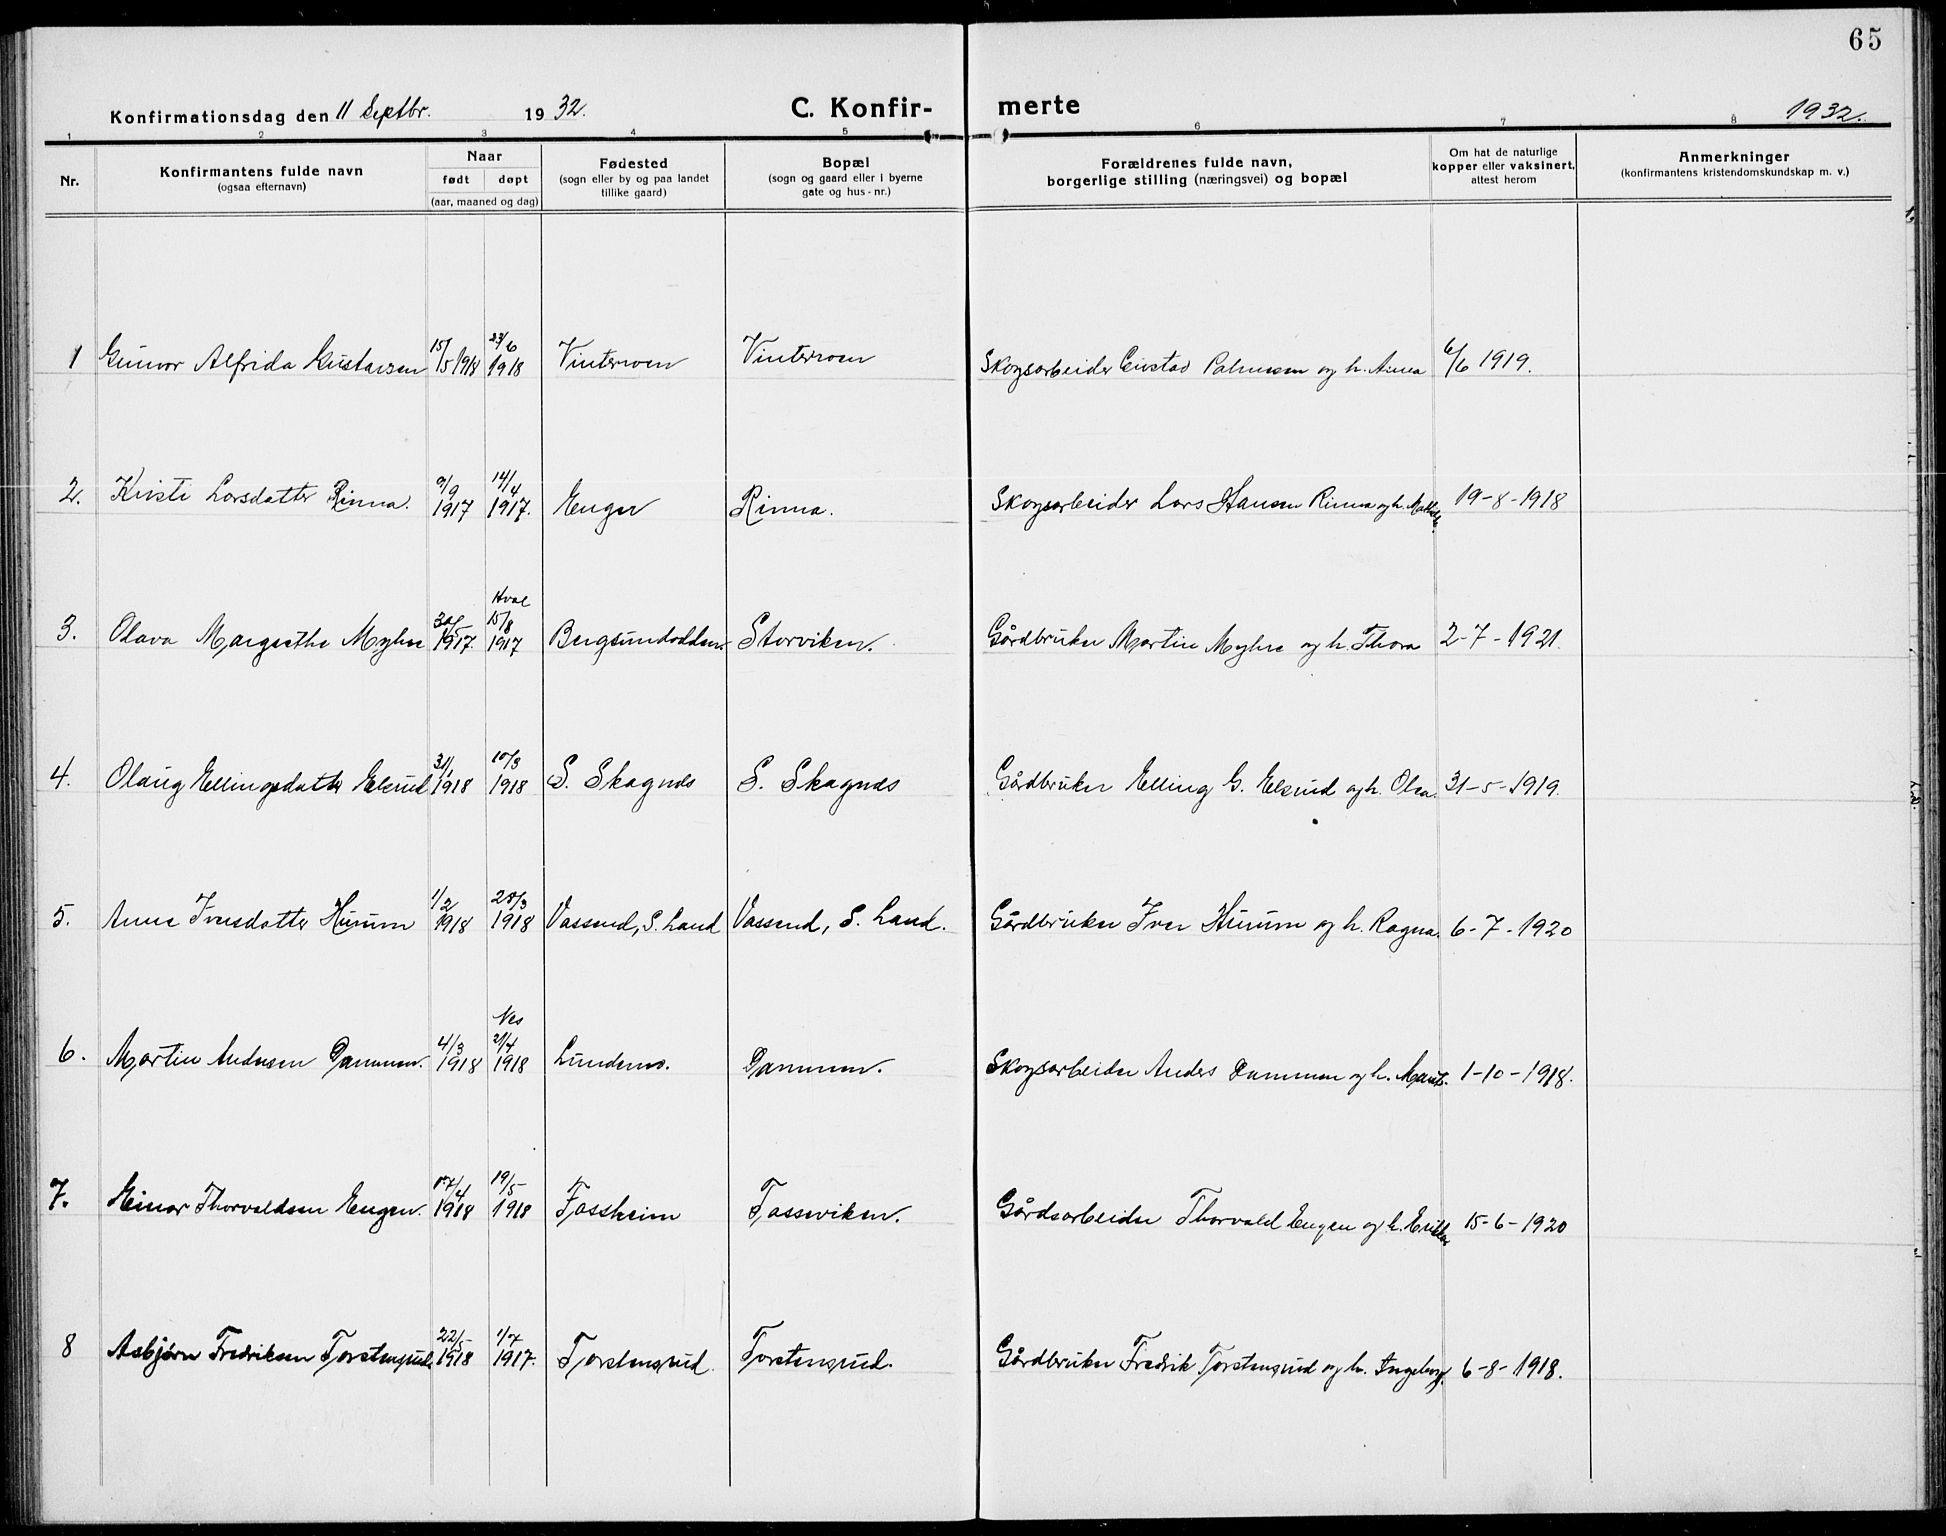 65
Konfirmationsdag den 11 Septbr. 1932. C. Konfir- merte 1932.
1 2 3 4 5 6 7 8
Nr. Konfirmantens fulde navn (ogsaa efternavn) Naar født døpt (aar, maaned og dag) Fødested (sogn eller by og paa landet tillike gaard) Bopæl (sogn og gaard eller i byerne gate og hus-nr.) Forældrenes fulde navn, borgerlige stilling (næringsvei) og bopæl Om hat de naturlige kopper eller vaksinert, attest herom Anmerkninger (konfirmantens kristendomskundskap m. v.)
1 Gunvor Alfrida Gustavsen 15/5 1918 23/6 1918 Vinterroen Vinterroen Skogsarbeider og h. Anna 6/6 1919.
2. Kristi Larsdatter Rinna. 9/9 1917 14/4 1917. Enger Rinna. Skogsarbeider Lars Hansen Rinna og h. Mathilde. 19-8-1918
3. Olava Margrethe Myhre 30/5 1917. Hval 15/8 1917 Bergsundodden Storviken. Gårdbruker Martin Myhre og h. Thora 2-7-1921.
4. Olaug Ellingsdatter Elsrud 31/1 1918 10/3 1918 S. Skagnes S. Skagnes Gårdbruker Elling G. Elsrud og h. Olea. 31-5-1919.
5. Anne Iversdatter Hurum 1/2 1918 28/3 1918 Vassend, S. Land Vassend, S. Land. Gårdbruker Iver Hurum og h. Ragna. 6-7-1920
6. Martin Andersen Dammen. 4/3 1918 Nes 21/4 1918 Lundemo. Dammen. Skogsarbeider Anders Dammen og h. 1-10-1918.
7. Einar Thorvaldsen Engen. 17/4 1918 19/5 1918 Fossheim Fossviken. Gårdsarbeider Thorvald Engen og h. 15-6-1920
8 Asbjørn Fredriksen Torstensrud 22/5 1918 1/7 1917. Torstensrud. Torstensrud. Gårdbruker Fredrik Torstensrud og h. Ingeborg. 6-8-1918.